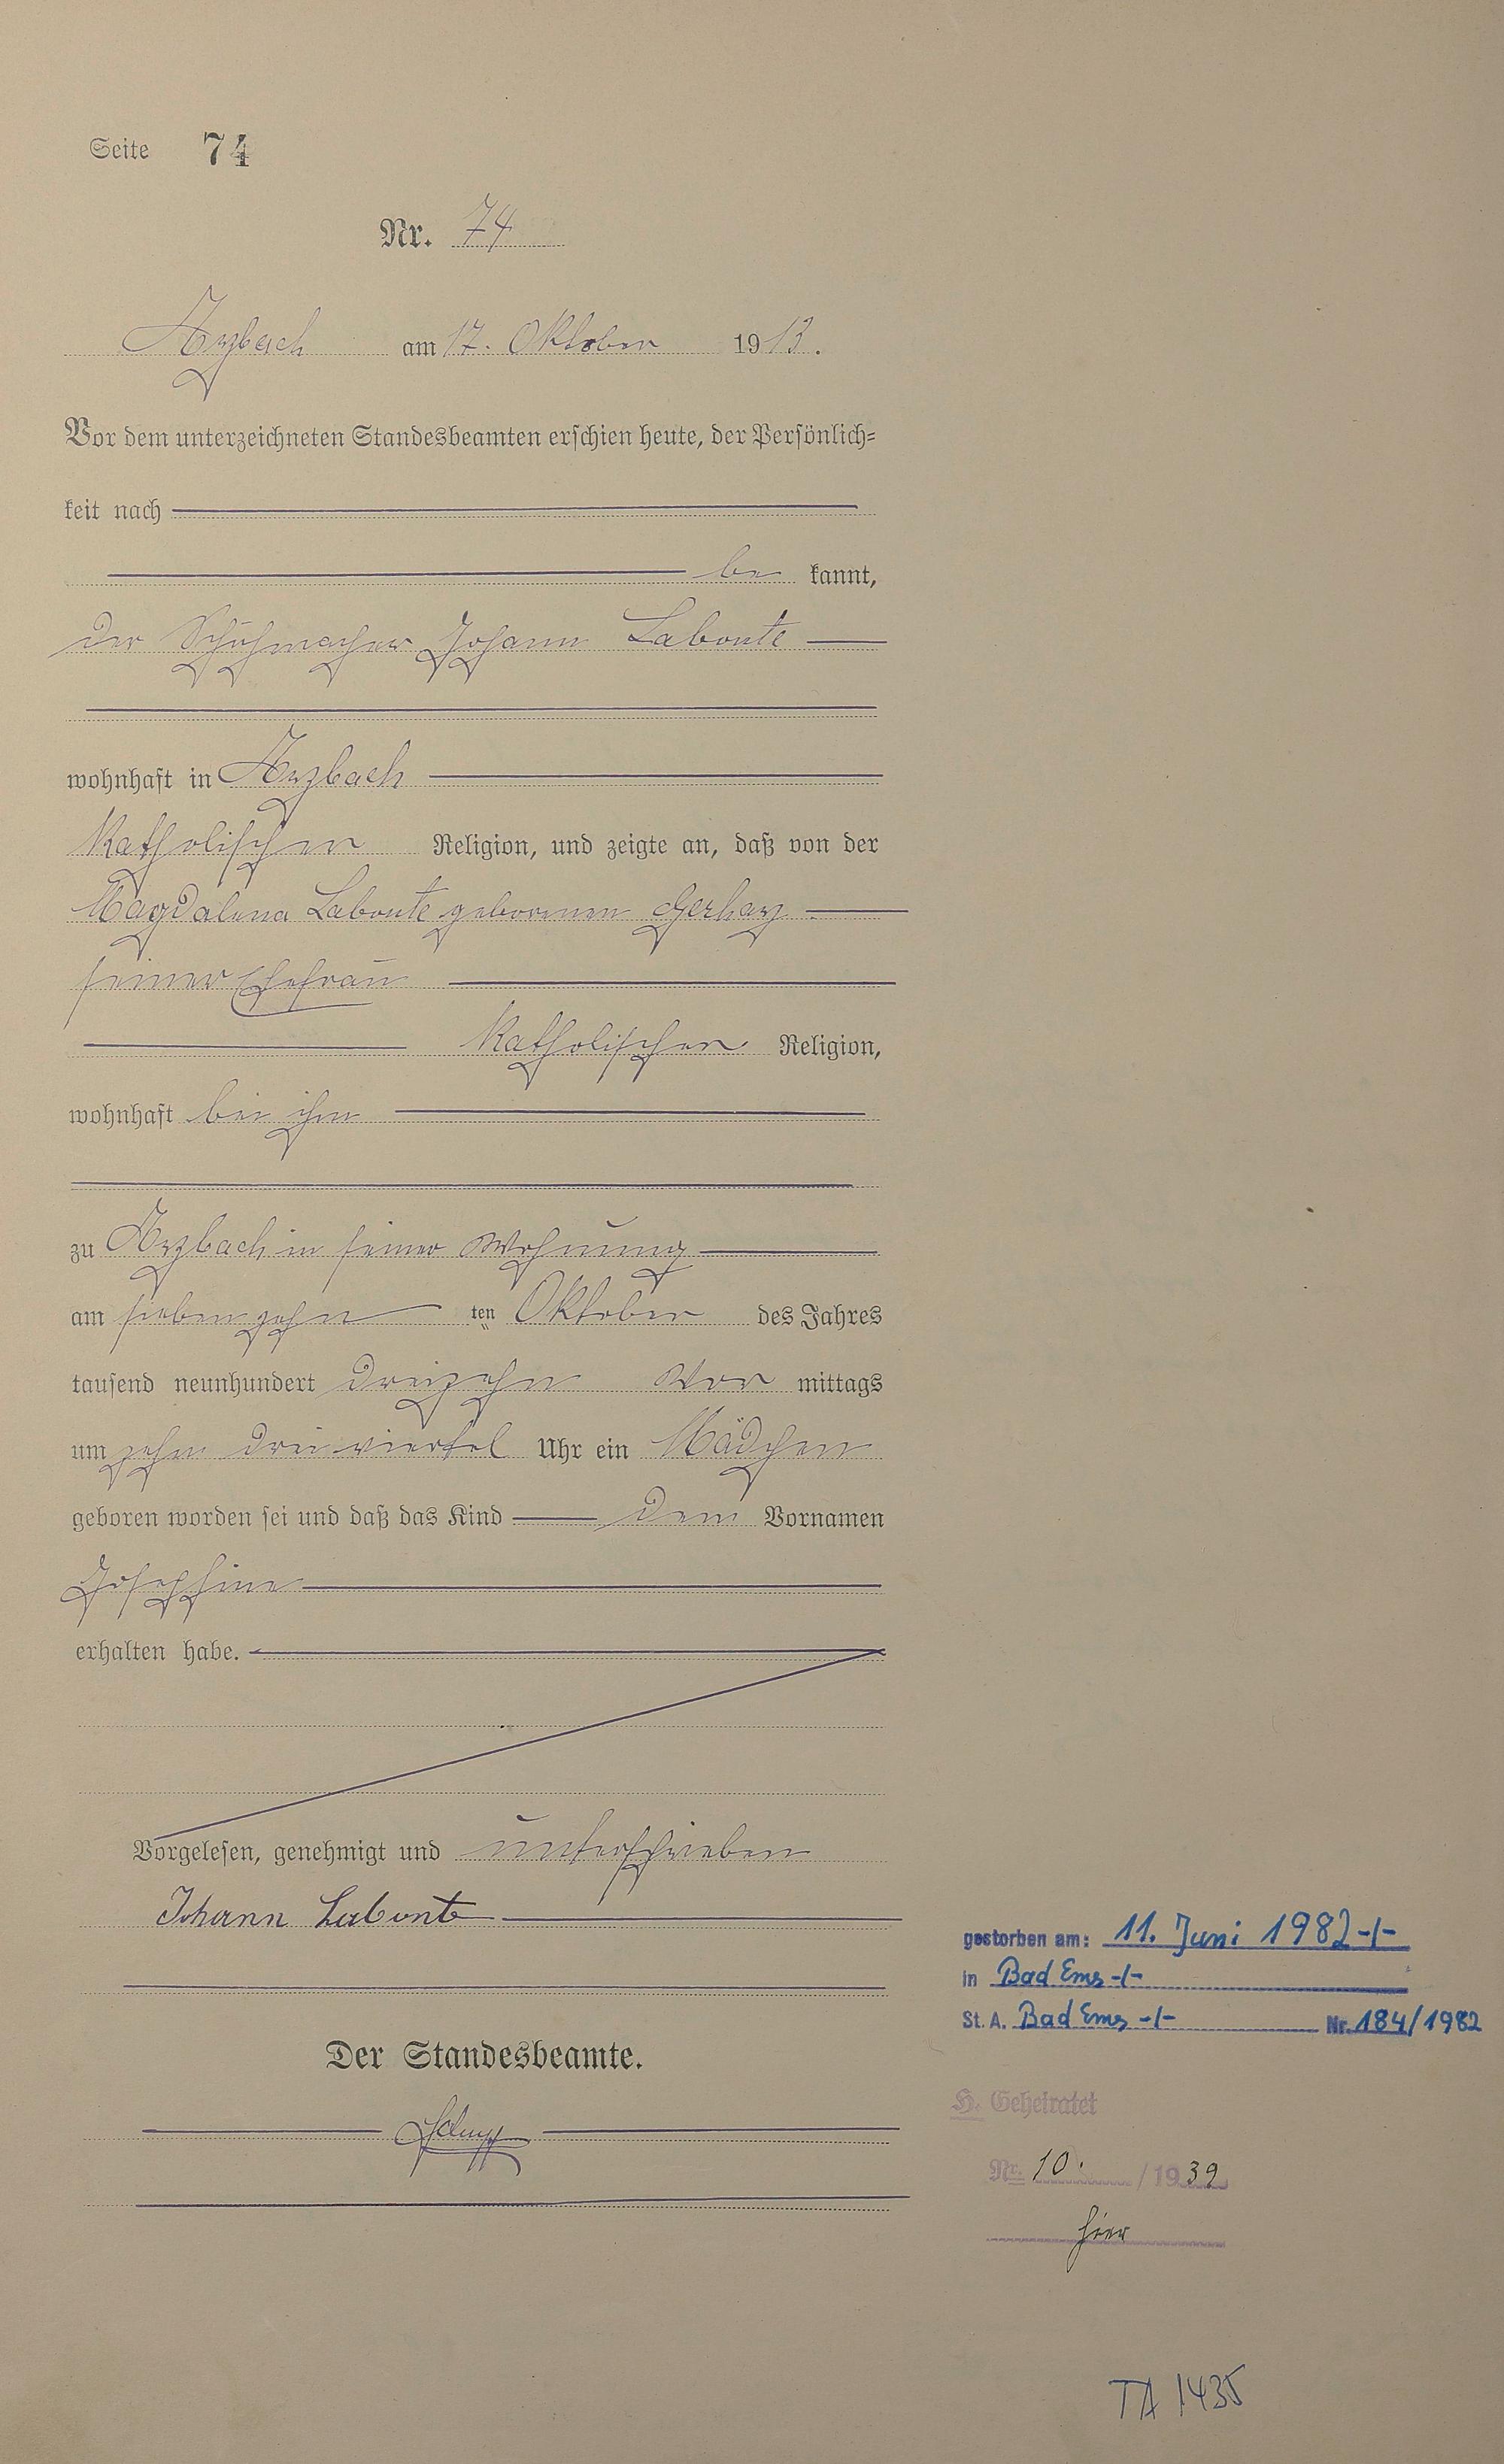 Seite 74
Nr. 74
Arzbach am 17. Oktober 1913.
Vor dem unterzeichneten Standesbeamten erschien heute, der Persönlich=
keit nach
be kannt,
der Schuhmacher Johann Labonte
wohnhaft in Arzbach
katholischer Religion, und zeigte an, daß von der
Magdalena Labonte geborenen Gerharz
seiner Ehefrau
katholischer Religion,
wohnhaft bei ihm
zu Arzbach in seiner Wohnung
am siebenzehn ten Oktober des Jahres
tausend neunhundert dreizehn Vor mittags
um zehn dreiviertel Uhr ein Mädchen
geboren worden sei und daß das Kind den Vornamen
Josephine
erhalten habe.
Vorgelesen, genehmigt und unterschrieben
Johann Labonte
gestorben am: 11. Juni 1982 -/-
in Bad Ems -/-
St. A. Bad Ems -/- Nr. 184/1982
Der Standesbeamte.
H. Geheiratet
Nr. 10. / 1939
hier
TA 1435